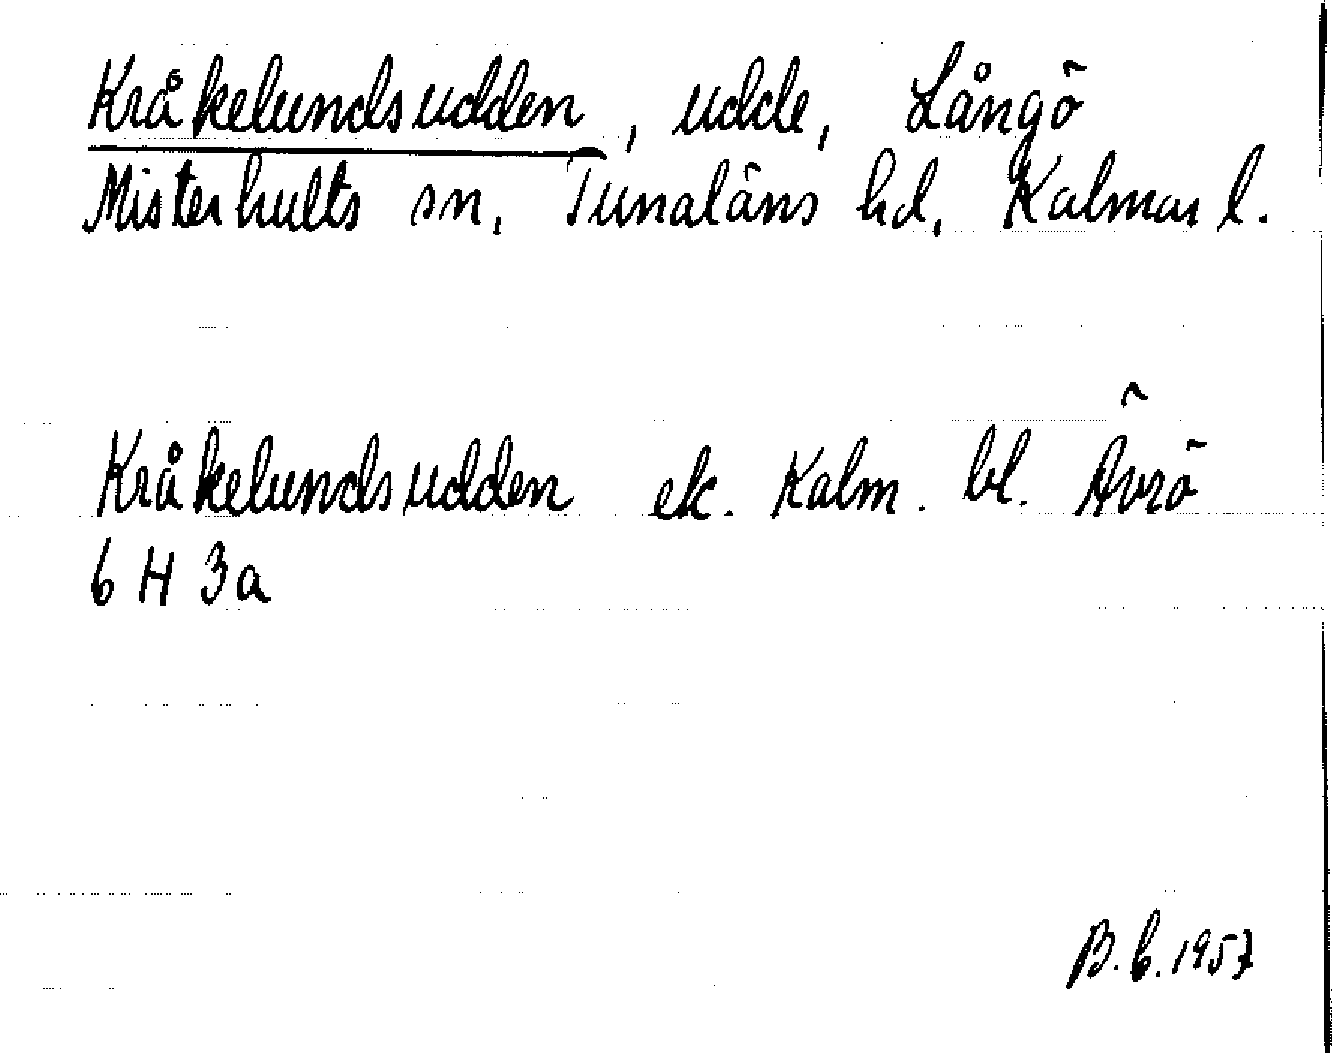 Kråkelundsudden, udde, Långö
Misterhults sn, Tunaläns hd, Kalmar l.
Kråkelundsudden ek. Kalm. bl. Ävrö
6 H 3a
B.b. 1957